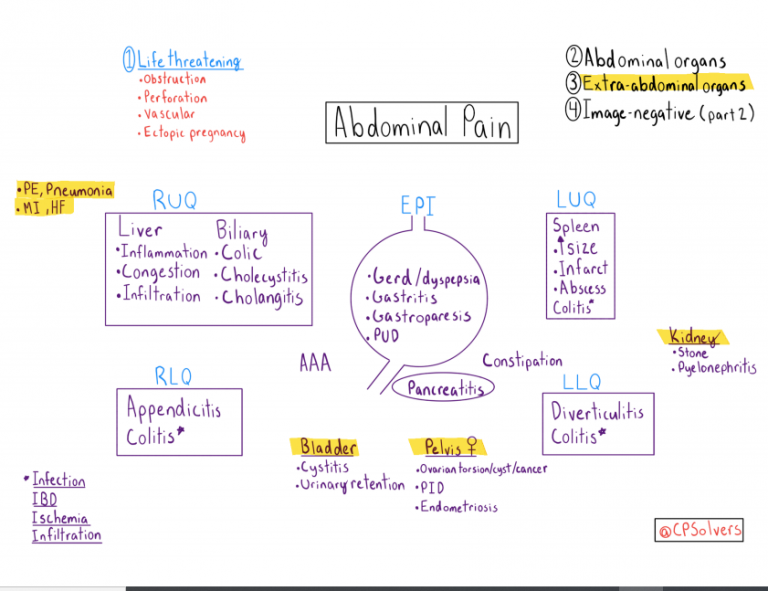 ① Life threatening
•Obstruction
•Perforation
•Vascular
•Ectopic pregnancy
② Abdominal organs
③ Extra-abdominal organs
④ Image-negative (part 2)
Abdominal Pain
•PE, Pneumonia
•MI, HF
RUQ
Liver
•Inflammation
•Congestion
•Infiltration
Biliary
•Colic
•Cholecystitis
•Cholangitis
EPI
•Gerd/dyspepsia
•Gastritis
•Gastroparesis
•PUD
LUQ
Spleen
•↑size
•Infarct
•Abscess
Colitis*
Kidney
•Stone
•Pyelonephritis
AAA
Constipation
Pancreatitis
RLQ
Appendicitis
Colitis*
LLQ
Diverticulitis
Colitis*
Bladder
•Cystitis
•Urinary retention
Pelvis ♀
•Ovarian torsion/cyst/cancer
•PID
•Endometriosis
*Infection
IBD
Ischemia
Infiltration
@CPSolvers